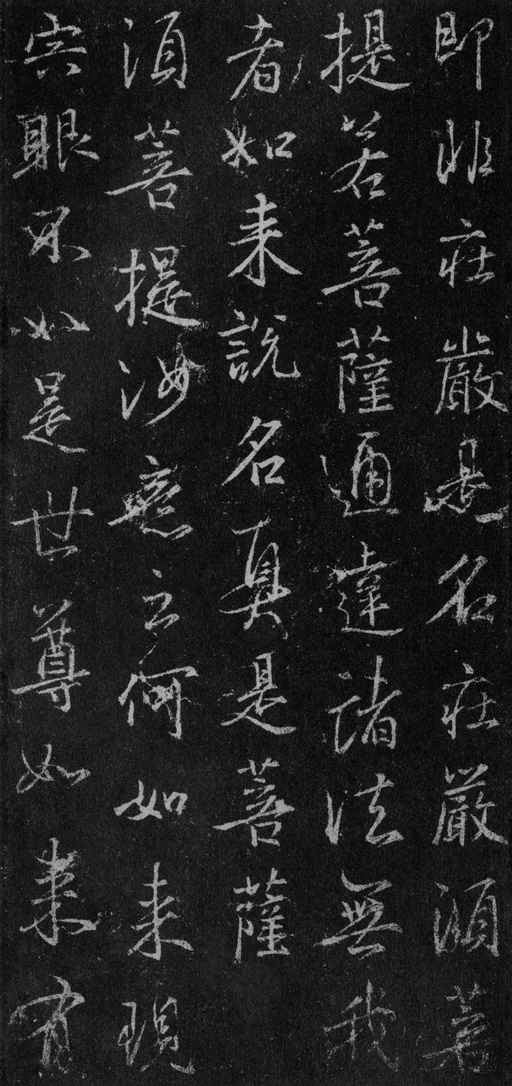 即非莊嚴是名莊嚴須菩
提若菩薩通達諸法無我
者如来說名真是菩薩
須菩提汝意云何如来現
宍眼不如是世尊如来有